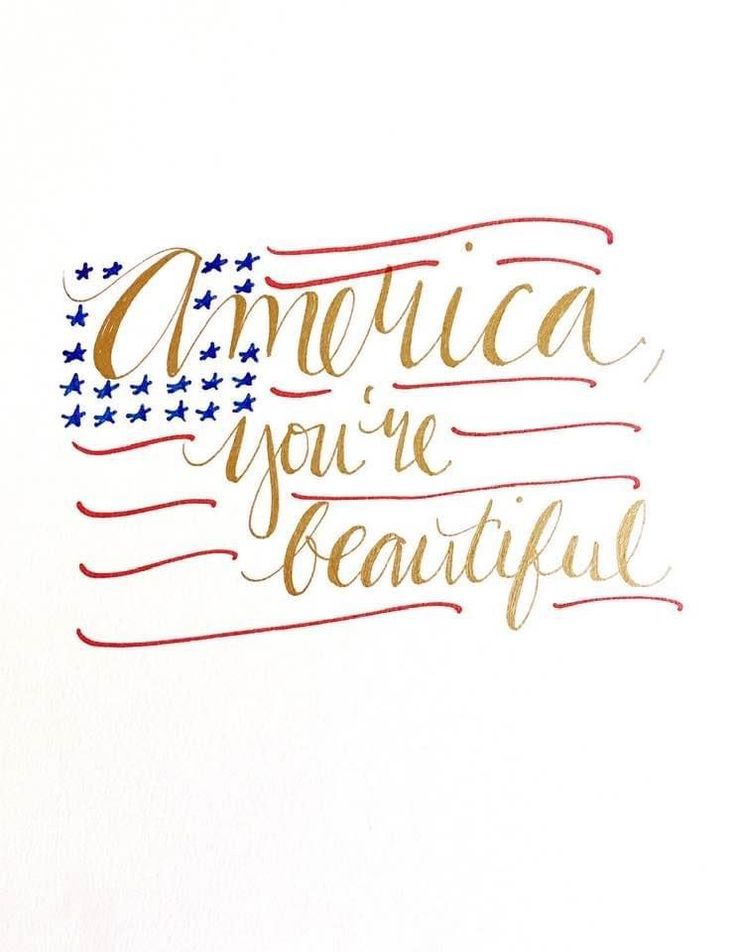 America,
you're
beautiful